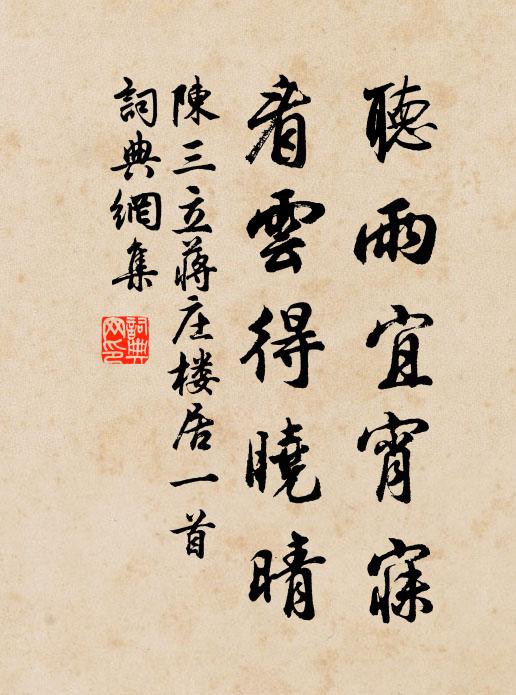 聽雨宜宵寐
看雲得曉晴
陳三立蔣庄楼居一首
詞典網集
詞典
网印